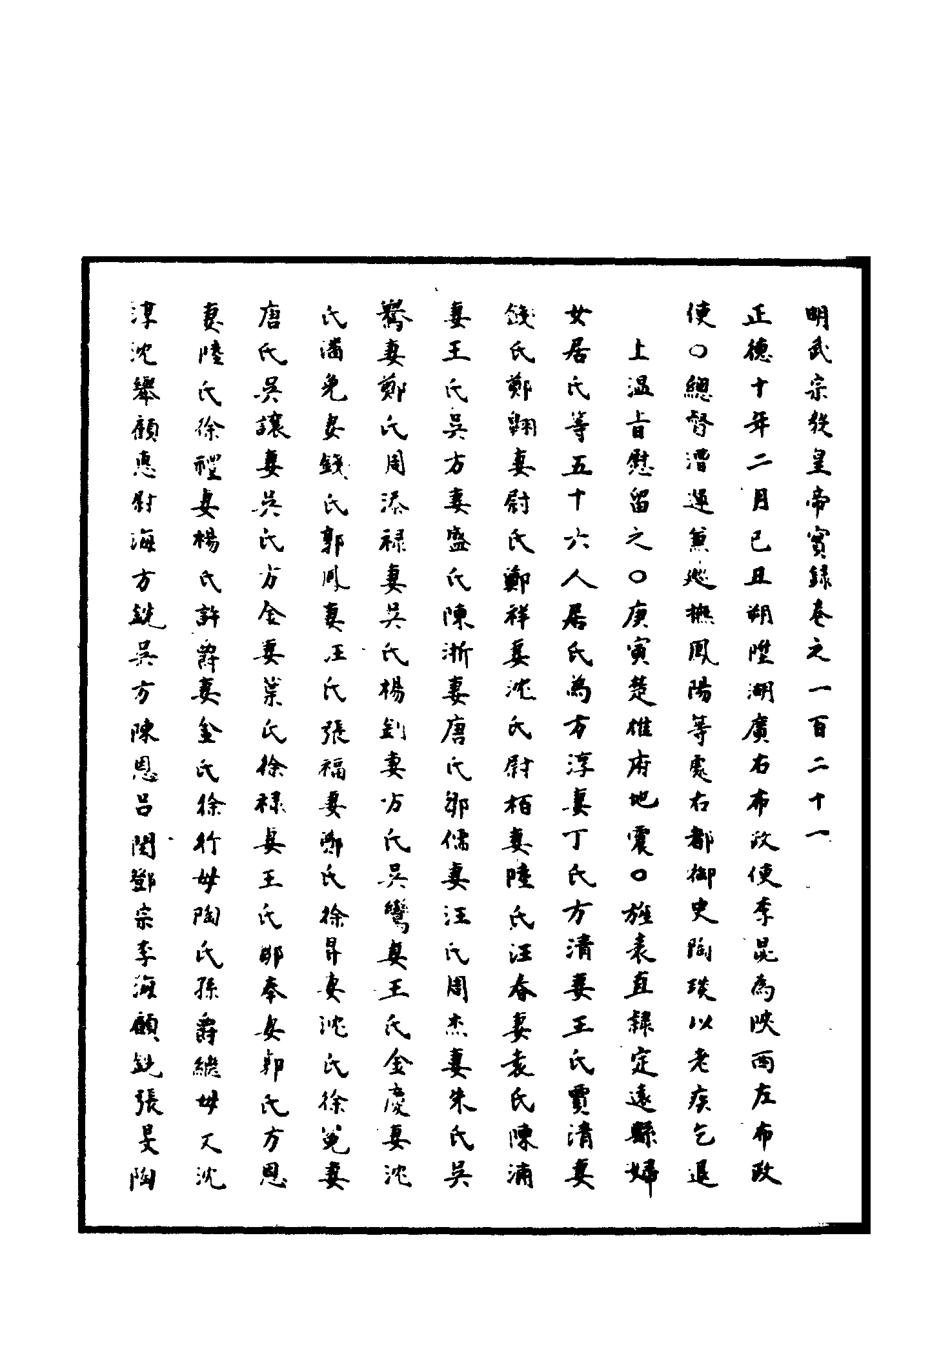 明武宗毅皇帝實錄卷之一百二十一
正德十年二月己丑朔陞湖廣右布政使李昆為陝西左布政
使○總督漕運兼巡撫鳳陽等處右都御史陶琰以老疾乞退
上温旨慰留之○庚寅楚雄府地震○旌表直隸定遠縣婦
女居氏等五十六人居氏為方淳妻丁氏方清妻王氏賈清妻
錢氏鄭翱妻尉氏鄭祥妻沈氏尉栢妻陸氏汪春妻袁氏陳浦
妻王氏吳方妻盛氏陳浙妻唐氏邹儒妻汪氏周杰妻朱氏吳
鸞妻鄭氏周添禄妻吳氏楊釗妻方氏吳鸞妻王氏金慶妻沈
氏潘堯妻錢氏郭鳳妻汪氏張福妻鄭氏徐昇妻沈氏徐冕妻
唐氏吳讓妻吳氏方金妻葉氏徐禄妻王氏鄭奉妻郭氏方恩
妻陸氏徐禮妻楊氏許爵妻金氏徐行母陶氏孫爵繼母又沈
淳沈舉顧惠尉海方銳吳方陳恩吕閏鄧宗李海顧銑張旻陶